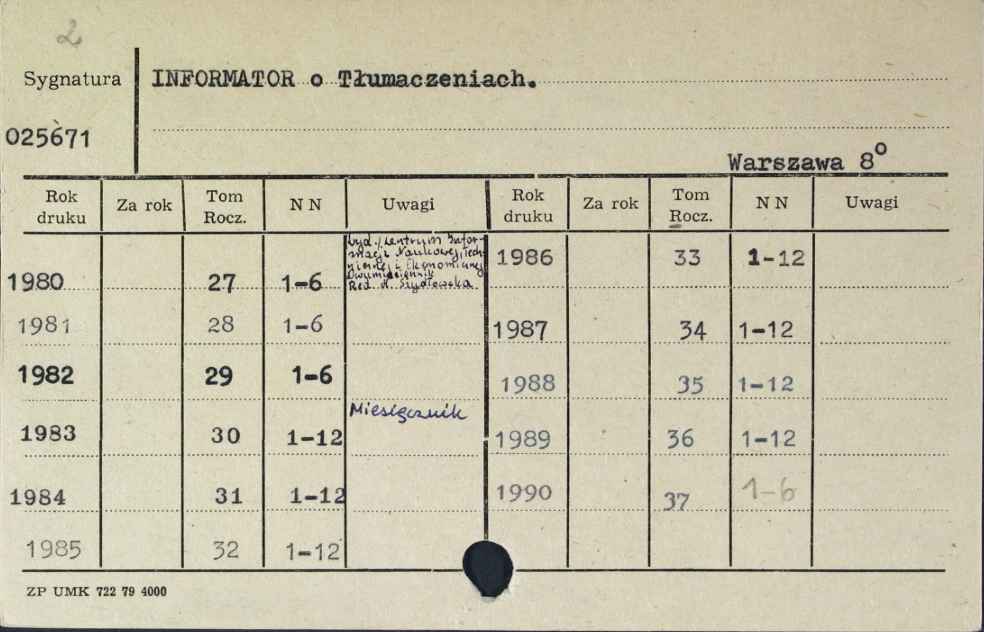 2
Sygnatura INFORMATOR o Tłumaczeniach.
025671
Warszawa 8°
Rok druku Za rok Tom Rocz. N N Uwagi Rok druku Za rok Tom Rocz. N N Uwagi
Wyd.: Centrum Infor-
macji Naukowej, Tech-
nicznej i Ekonomicznej
Dwumiesięcznik
Red. H. Szydłowska
1980 27 1-6
1981 28 1-6
1982 29 1-6
Miesięcznik
1983 30 1-12
1984 31 1-12
1985 32 1-12
1986 33 1-12
1987 34 1-12
1988 35 1-12
1989 36 1-12
1990 37 1-6
ZP UMK 722 79 4000